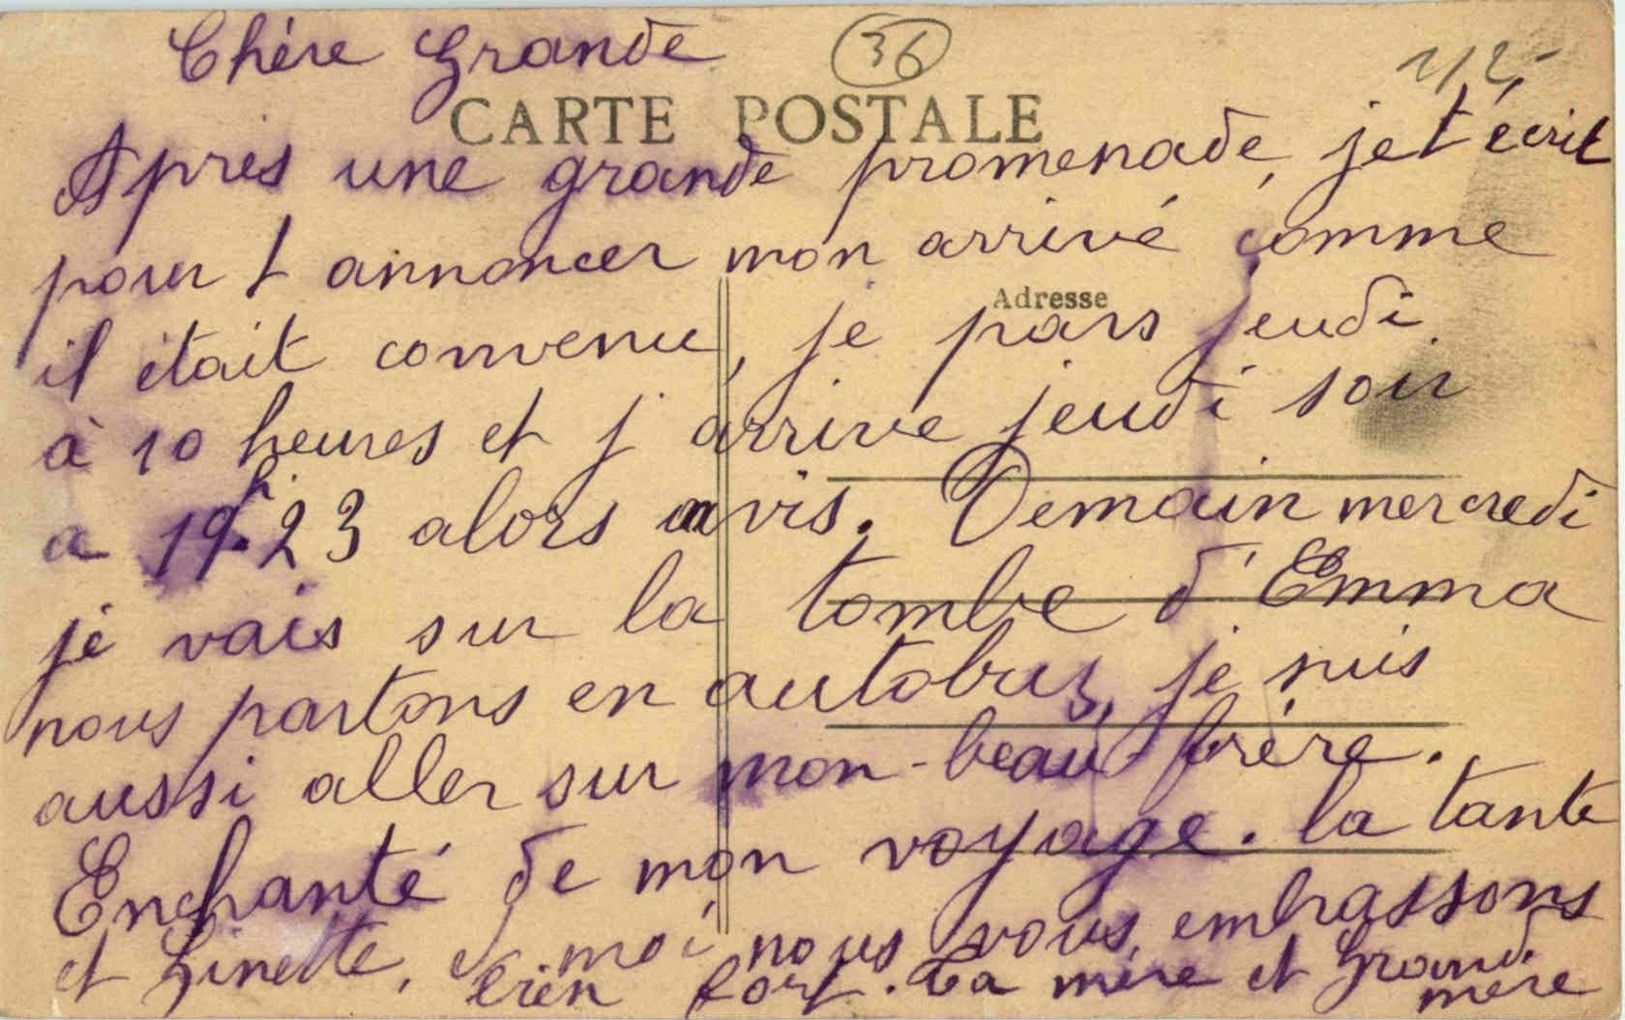 Chère Grande
36
1/2
CARTE POSTALE
Après une grande promenade, je t'écrit
pour t annoncer mon arrivé comme
Adresse
il était convenu, je pars jeudi
à 10 heures et j arrive jeudi soir
a 19h23 alors avis. Demain mercredi
je vais sur la tombe d'Emma
nous partons en autobus, je suis
aussi aller sur mon-beau-frère.
Enchanté de mon voyage. la tante
et Linette, et moi nous vous embrassons
bien fort. Ta mère et Grand mère